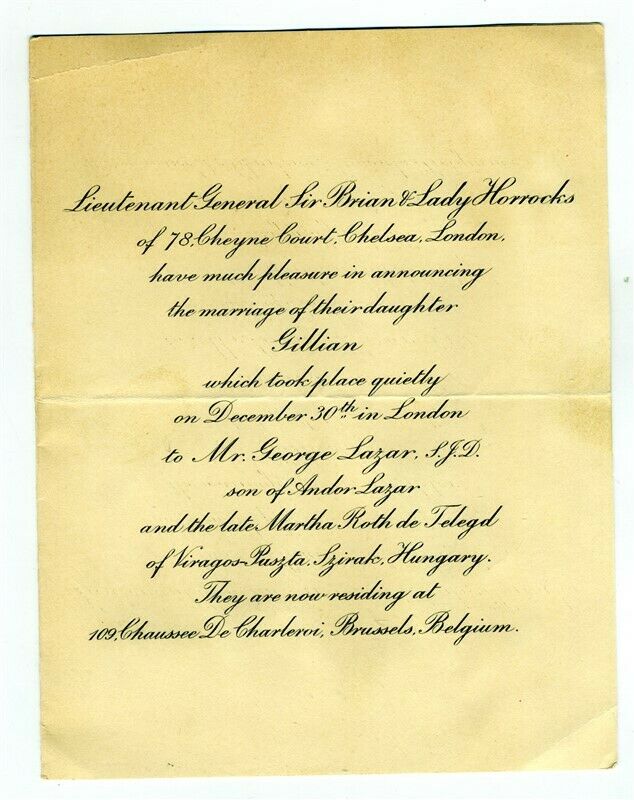 Lieutenant General Sir Brian & Lady Horrocks
of 78, Cheyne Court, Chelsea, London,
have much pleasure in announcing
the marriage of their daughter
Gillian
which took place quietly
on December 30th in London
to Mr. George Lazar, S.J.D.
son of Andor Lazar
and the late Martha Roth de Telegd
of Viragos-Puszta, Szirak, Hungary.
They are now residing at
109, Chaussee De Charleroi, Brussels, Belgium.